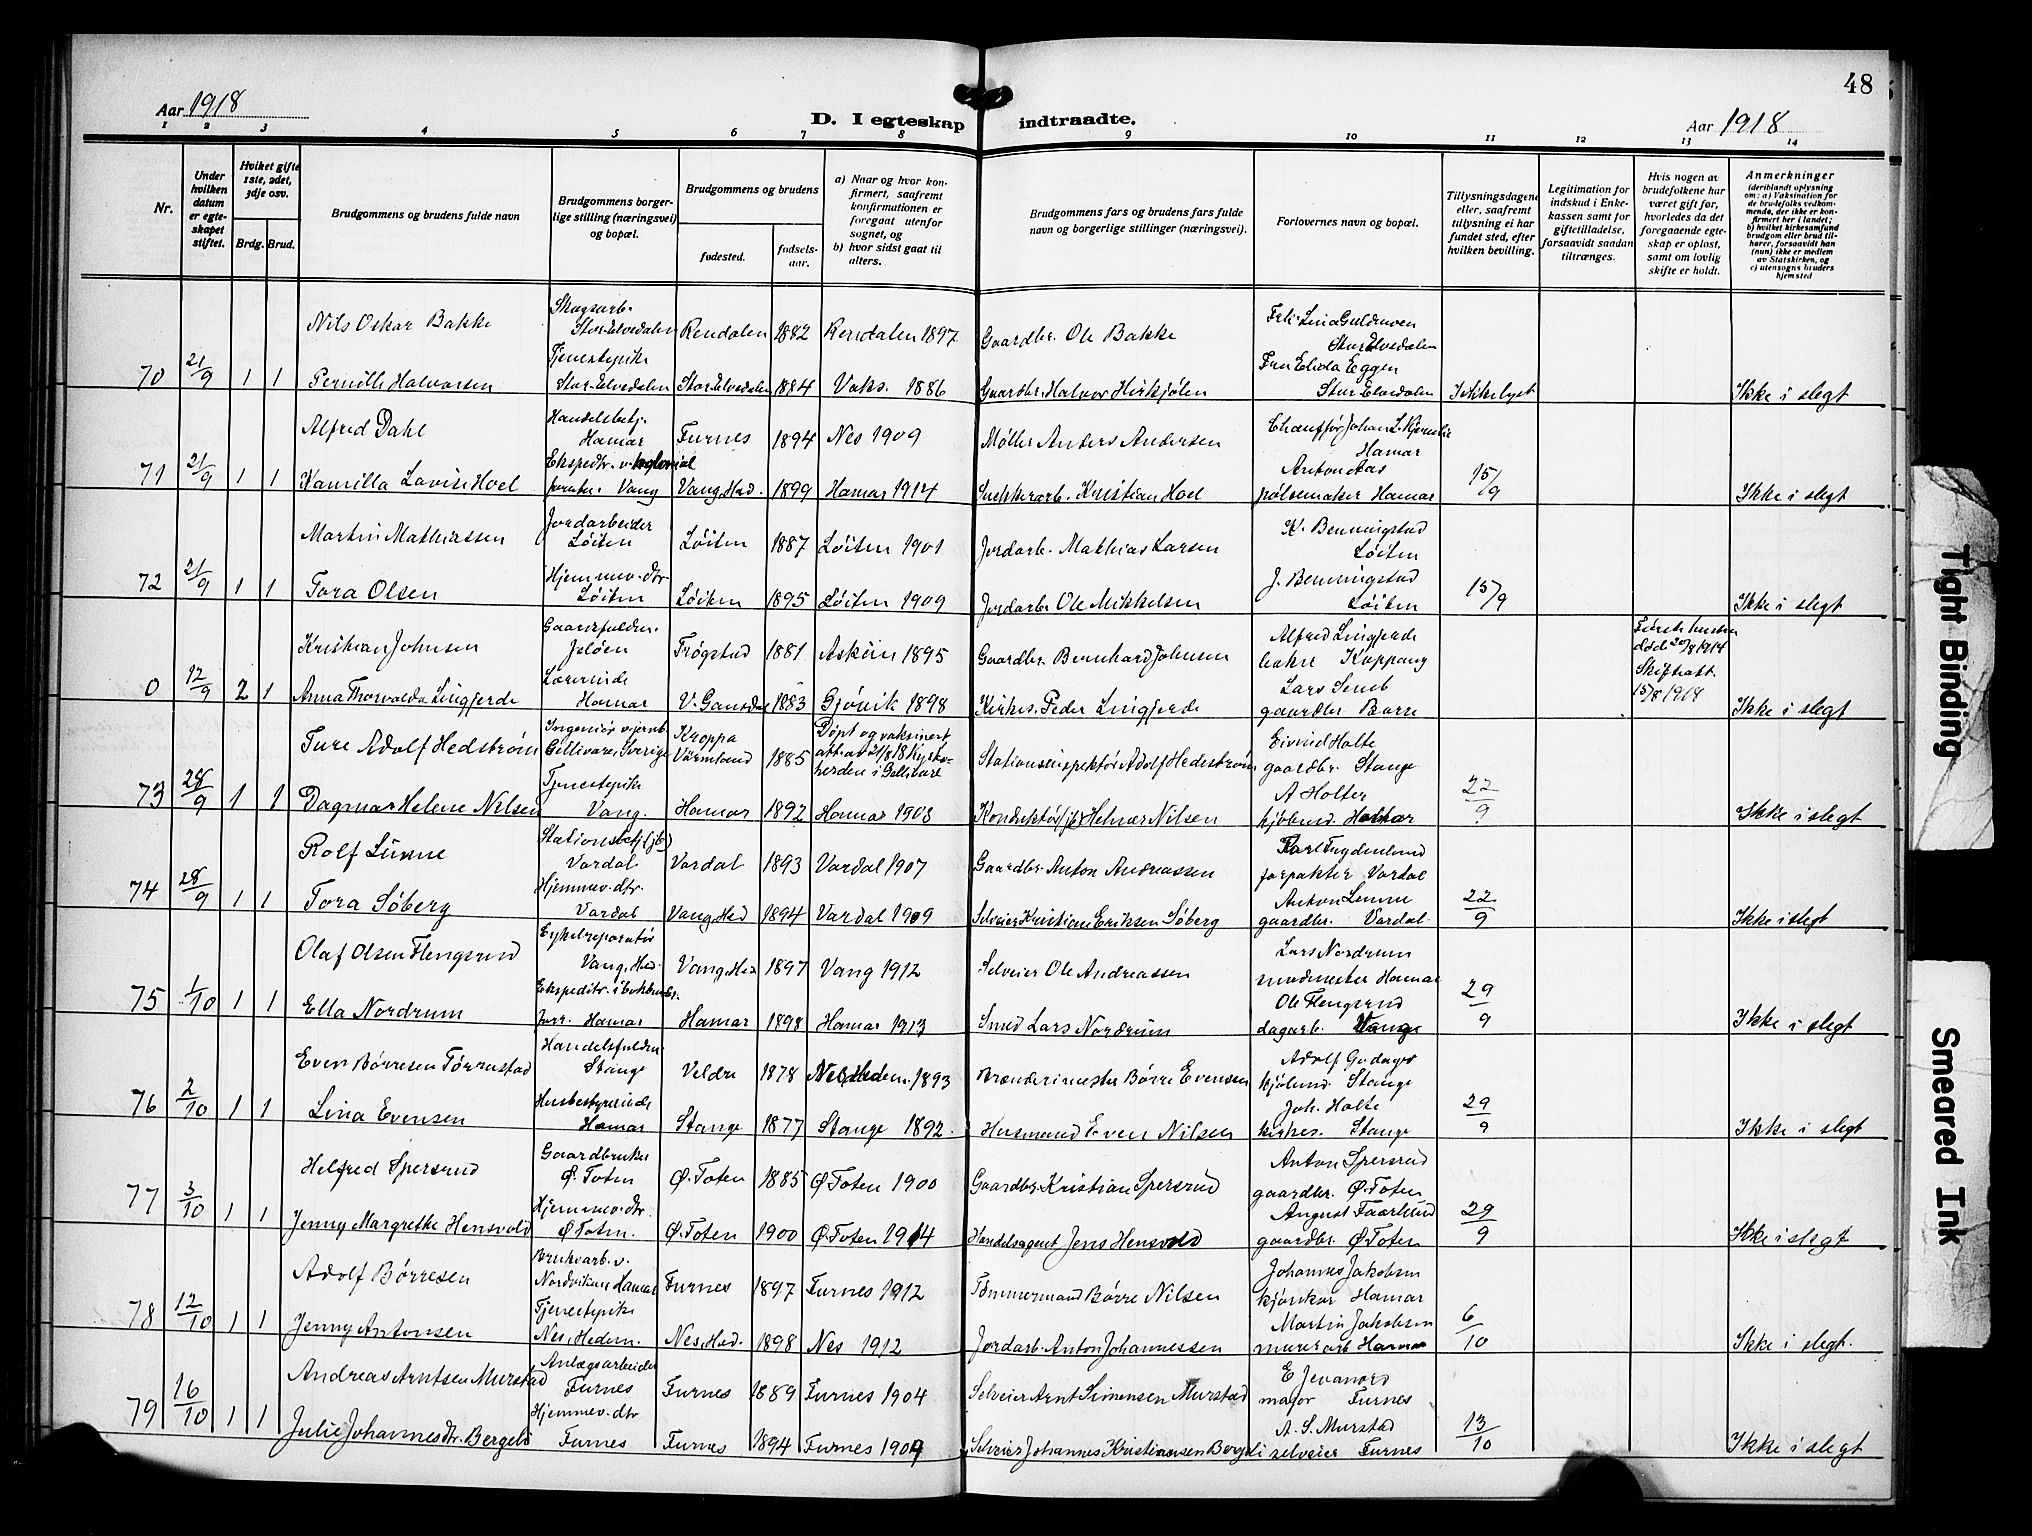 48
Aar 1918
D. I egteskap indtraadte.
Aar 1918
1 2 3 4 5 6 7 8 9 10 11 12 13 14
Nr.
Under hvilken datum er egteskapet stiftet.
Hvilket gifte 1ste, 2det, 3dje osv.
Brdg. Brud.
Brudgommens og brudens fulde navn
Brudgommens borgerlige stilling (næringsvei) og bopæl.
Brudgommens og brudens
fødested.
fødselsaar.
a) Naar og hvor konfirmert, saafremt konfirmationen er foregaat utenfor sognet, og
b) hvor sidst gaat til alters.
Brudgommens fars og brudens fars fulde navn og borgerlige stillinger (næringsvei).
Forlovernes navn og bopæl.
Tillysningsdagene eller, saafremt tillysning ei har fundet sted, efter hvilken bevilling.
Legitimation for indskud i Enkekassen samt for giftetilladelse, forsaavidt saadan tiltrænges.
Hvis nogen av brudefolkene har været gift før, hvorledes da det foregaaende egteskap er opløst, samt om lovlig skifte er holdt.
Anmerkninger
(deriblandt oplysning om: a) Vaksination for de brudefolks vedkommende, der ikke er konfirmert her i landet; b) hvilket kirkesamfund brudgom eller brud tilhører, forsaavidt han (hun) ikke er medlem av Statskirken, og c) utensogns bruders hjemsted
Nils Oskar Bakke Skogsarb. Stor-Elvedalen Rendalen 1882 Rendalen 1897 Gaardbr. Ole Bakke Stor Elvedalen
70 21/9 1 1 Pernille Halvorsen Tjenestepike Stor-Elvedalen Stor Elvedalen 1884 Vaks. 1886 Gaardbr. Halvor Hirkjølen Fru Elida Eggen Stor Elvedalen Ikke lyst Ikke i slegt
Alfred Dahl Handelsbetj. Hamar Furnes 1894 Nes 1909 Møller Anders Andersen Chauffør Johan L. Hamar
71 21/9 1 1 Kamilla Lovise Hoel Ekspedtr. v. kolonial Vang Vang, Hed. 1899 Hamar 1914 Snekkerarb. Kristian Hoel Anton Aas pølsemaker Hamar 15/9 Ikke i slegt
Martin Mathiassen Jordarbeider Løiten Løiten 1887 Løiten 1901 Jordarb. Mathias Larsen K. Benningstad Løiten
72 21/9 1 1 Tora Olsen Hjemmev. dtr. Løiten Løiten 1895 Løiten 1909 Jordarbr. Ole Mikkelsen J. Benningstad Løiten 15/9 Ikke i slegt
Kristian Johnsen Jeløen Trøgstad 1881 Askim 1895 Gaardbr. Bernhard Johnsen Alfred Lingjerde Koppang Første hustru død 20/8 1914
0 12/9 2 1 Anna Thorvalda Lingjerde Lærerinde Hamar V. Gausdal 1883 Gjøvik 1898 Kirkes. Peder Lingjerde Lars gaardbr. Borre Skifteatt. 15/8 1918 Ikke i slegt
Ture Adolf Hedstrøm Ingeniør v. jernb. Gellivare, Sverige Kroppa Värmland 1885 Døpt og vaksinert att. av 21/8 18 Kyrkoherden i Gellivare Stationsinspektør Adolf Hedstrøm Eivind Holte gaardbr. Stange
73 28/9 1 1 Dagmar Helene Nilsen Tjenestepike Vang. Hamar 1892 Hamar 1908 Konduktør Helmer Nilsen A Holter kjøbmd. Hamar 22/9 Ikke i slegt
Rolf Lunne Stationsbetj. (jb.) Vardal Vardal 1893 Vardal 1907 Gaardbr. Anton Andreassen Karl Fydenlund forpakter Vardal
74 28/9 1 1 Tora Søberg Hjemmev. dtr. Vardal Vang, Hed 1894 Vardal 1909 Selveier Kristian Eriksen Søberg Anton Lunne gaardbr. Vardal 22/9 Ikke i slegt
Olaf Olsen Flengsrud Cykelreparatør Vang, Hed. Vang, Hed 1897 Vang 1912 Selveier Ole Andreassen Lars Nordrum Hamar
75 1/10 1 1 Ella Nordrum Ekspeditr. i forr. Hamar Hamar 1898 Hamar 1913 Smed Lars Nordrum Ole Flengsrud dagarb. Vang 29/9 Ikke i slegt
Even Børresen Tørrustad Stange Veldre 1878 Nes, Hedem. 1893 Brænderimester Børre Evensen Adolf Godager Stange
76 2/10 1 1 Lina Evensen Husbestyrerinde Hamar Stange 1877 Stange 1892. Husmand Even Nilsen Joh. Holte kirkes. Stange 29/9 Ikke i slegt
Helfred Spersrud Gaardbruker Ø. Toten Ø. Toten 1885 Ø. Toten 1900 Gaardbr. Kristian Spersrud Anton Spersrud gaardbr. Ø. Toten
77 3/10 1 1 Jenny Margrethe Hensvold Hjemmev. dtr. Ø. Toten. Ø. Toten 1900 Ø. Toten 1914 Handelsagent Jens Hensvold August Faarlund gaardbr. Ø. Toten 29/9 Ikke i slegt
Adolf Børresen Brukarb. v. Nordviken Hamar Furnes 1897 Furnes 1912 Tømmermand Børre Nilsen Johannes Jakobsen Hamar
78 12/10 1 1 Jenny Antonsen Tjenestepike Nes, Hedem. Nes, Hed. 1898 Nes 1912 Jordarb. Anton Johannessen Martin Jakobsen murerarb Hamar 6/10 Ikke i slegt.
Andreas Arntsen Murstad Anlægsarbeider Furnes Furnes 1889 Furnes 1904 Selveier Arnt Simensen Murstad E Jevanord major Furnes
79 16/10 1 1 Julie Johannesdtr. Bergeli Hjemmev. dtr Furnes Furnes 1894 Furnes 1909 Selveier Johannes Kristiansen Bergeli A. S. Murstad selveier Furnes 13/10 Ikke i slegt
Tight Binding
Smeared Ink